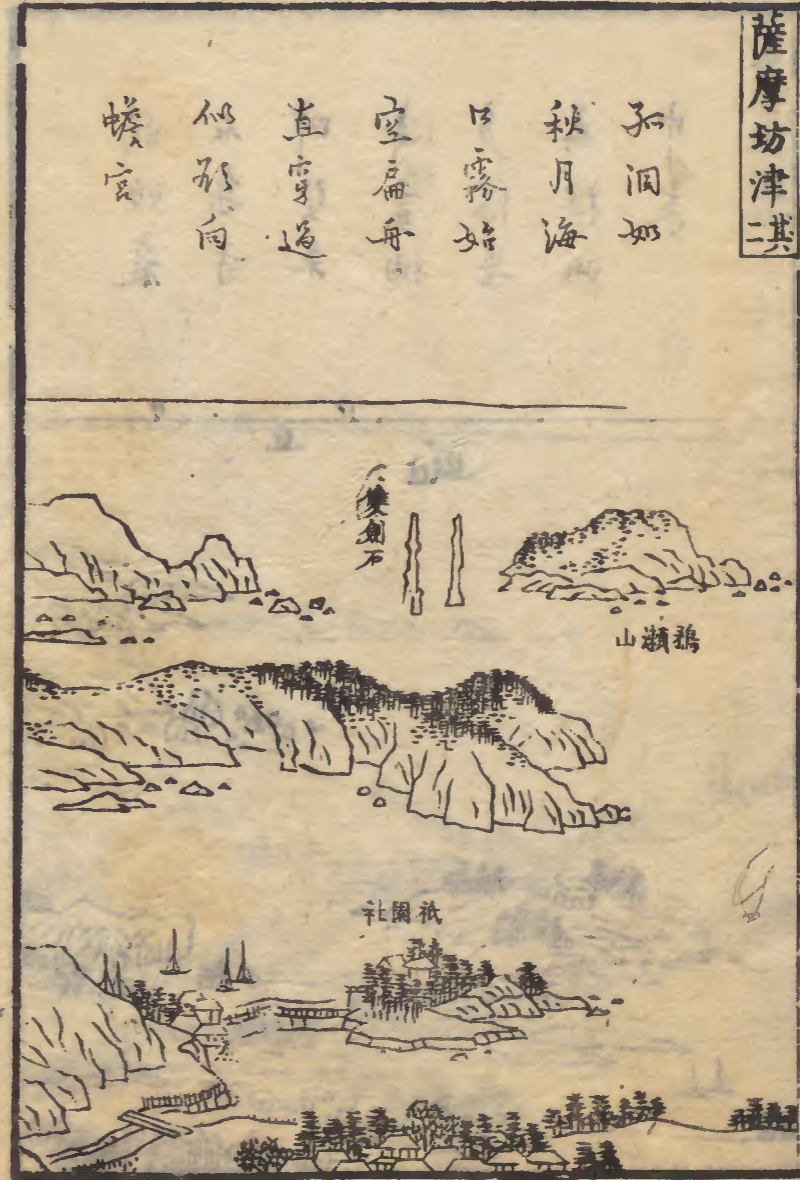 薩摩坊津
其二
孤洞如
秋月海
口霧始
空扁舟
直穿過
似欲向
蟾宮
雙劍石
鵜瀬山
祇園社